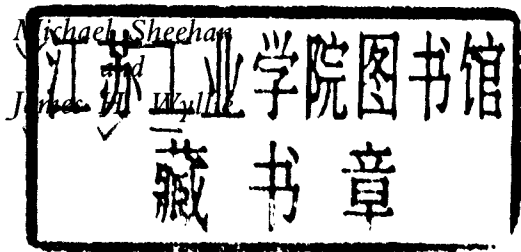 Michael Sheehan
and
James H. Wyllie
江苏工业学院图书馆
藏书章